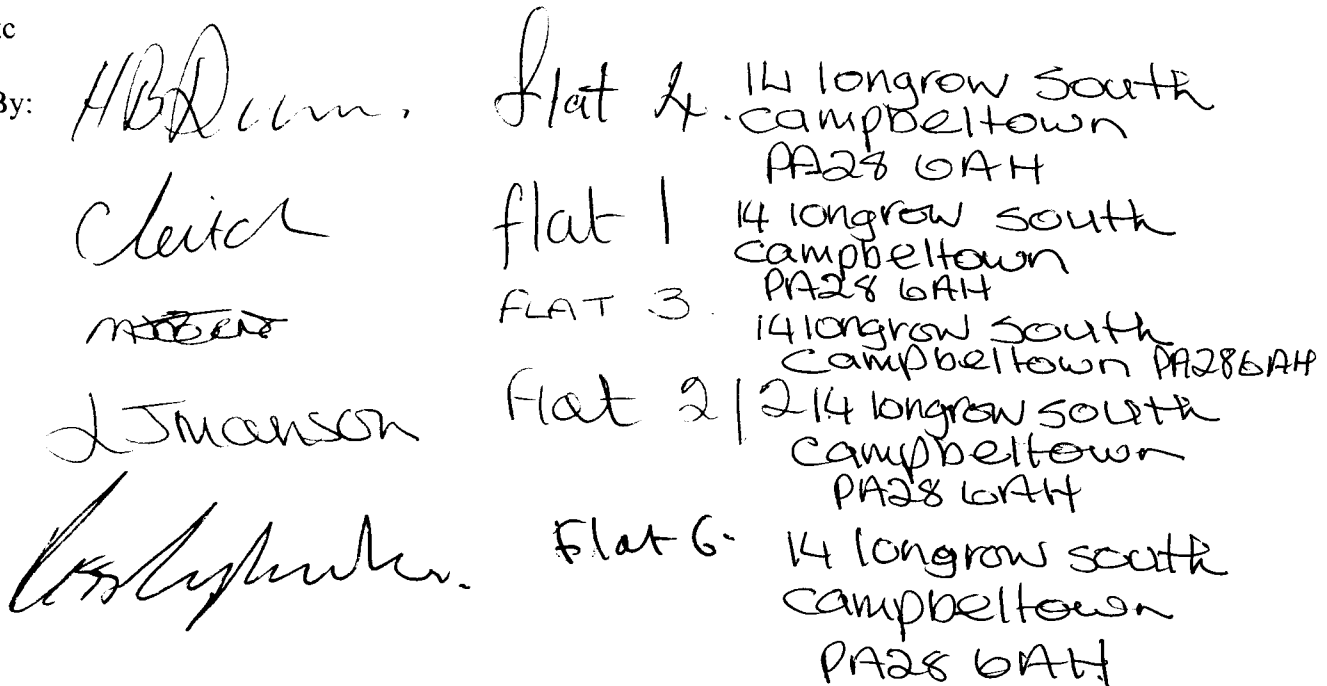 By: flat 4. 14 longrow south
campbeltown
PA28 6AH
Cleitch flat 1 14 longrow south
campbeltown
PA28 6AH
FLAT 3 14 longrow south
campbeltown PA28 6AH
LJManson Flat 2/2 14 longrow south
campbeltown
PA28 6AH
Flat 6. 14 longrow south
campbeltown
PA28 6AH